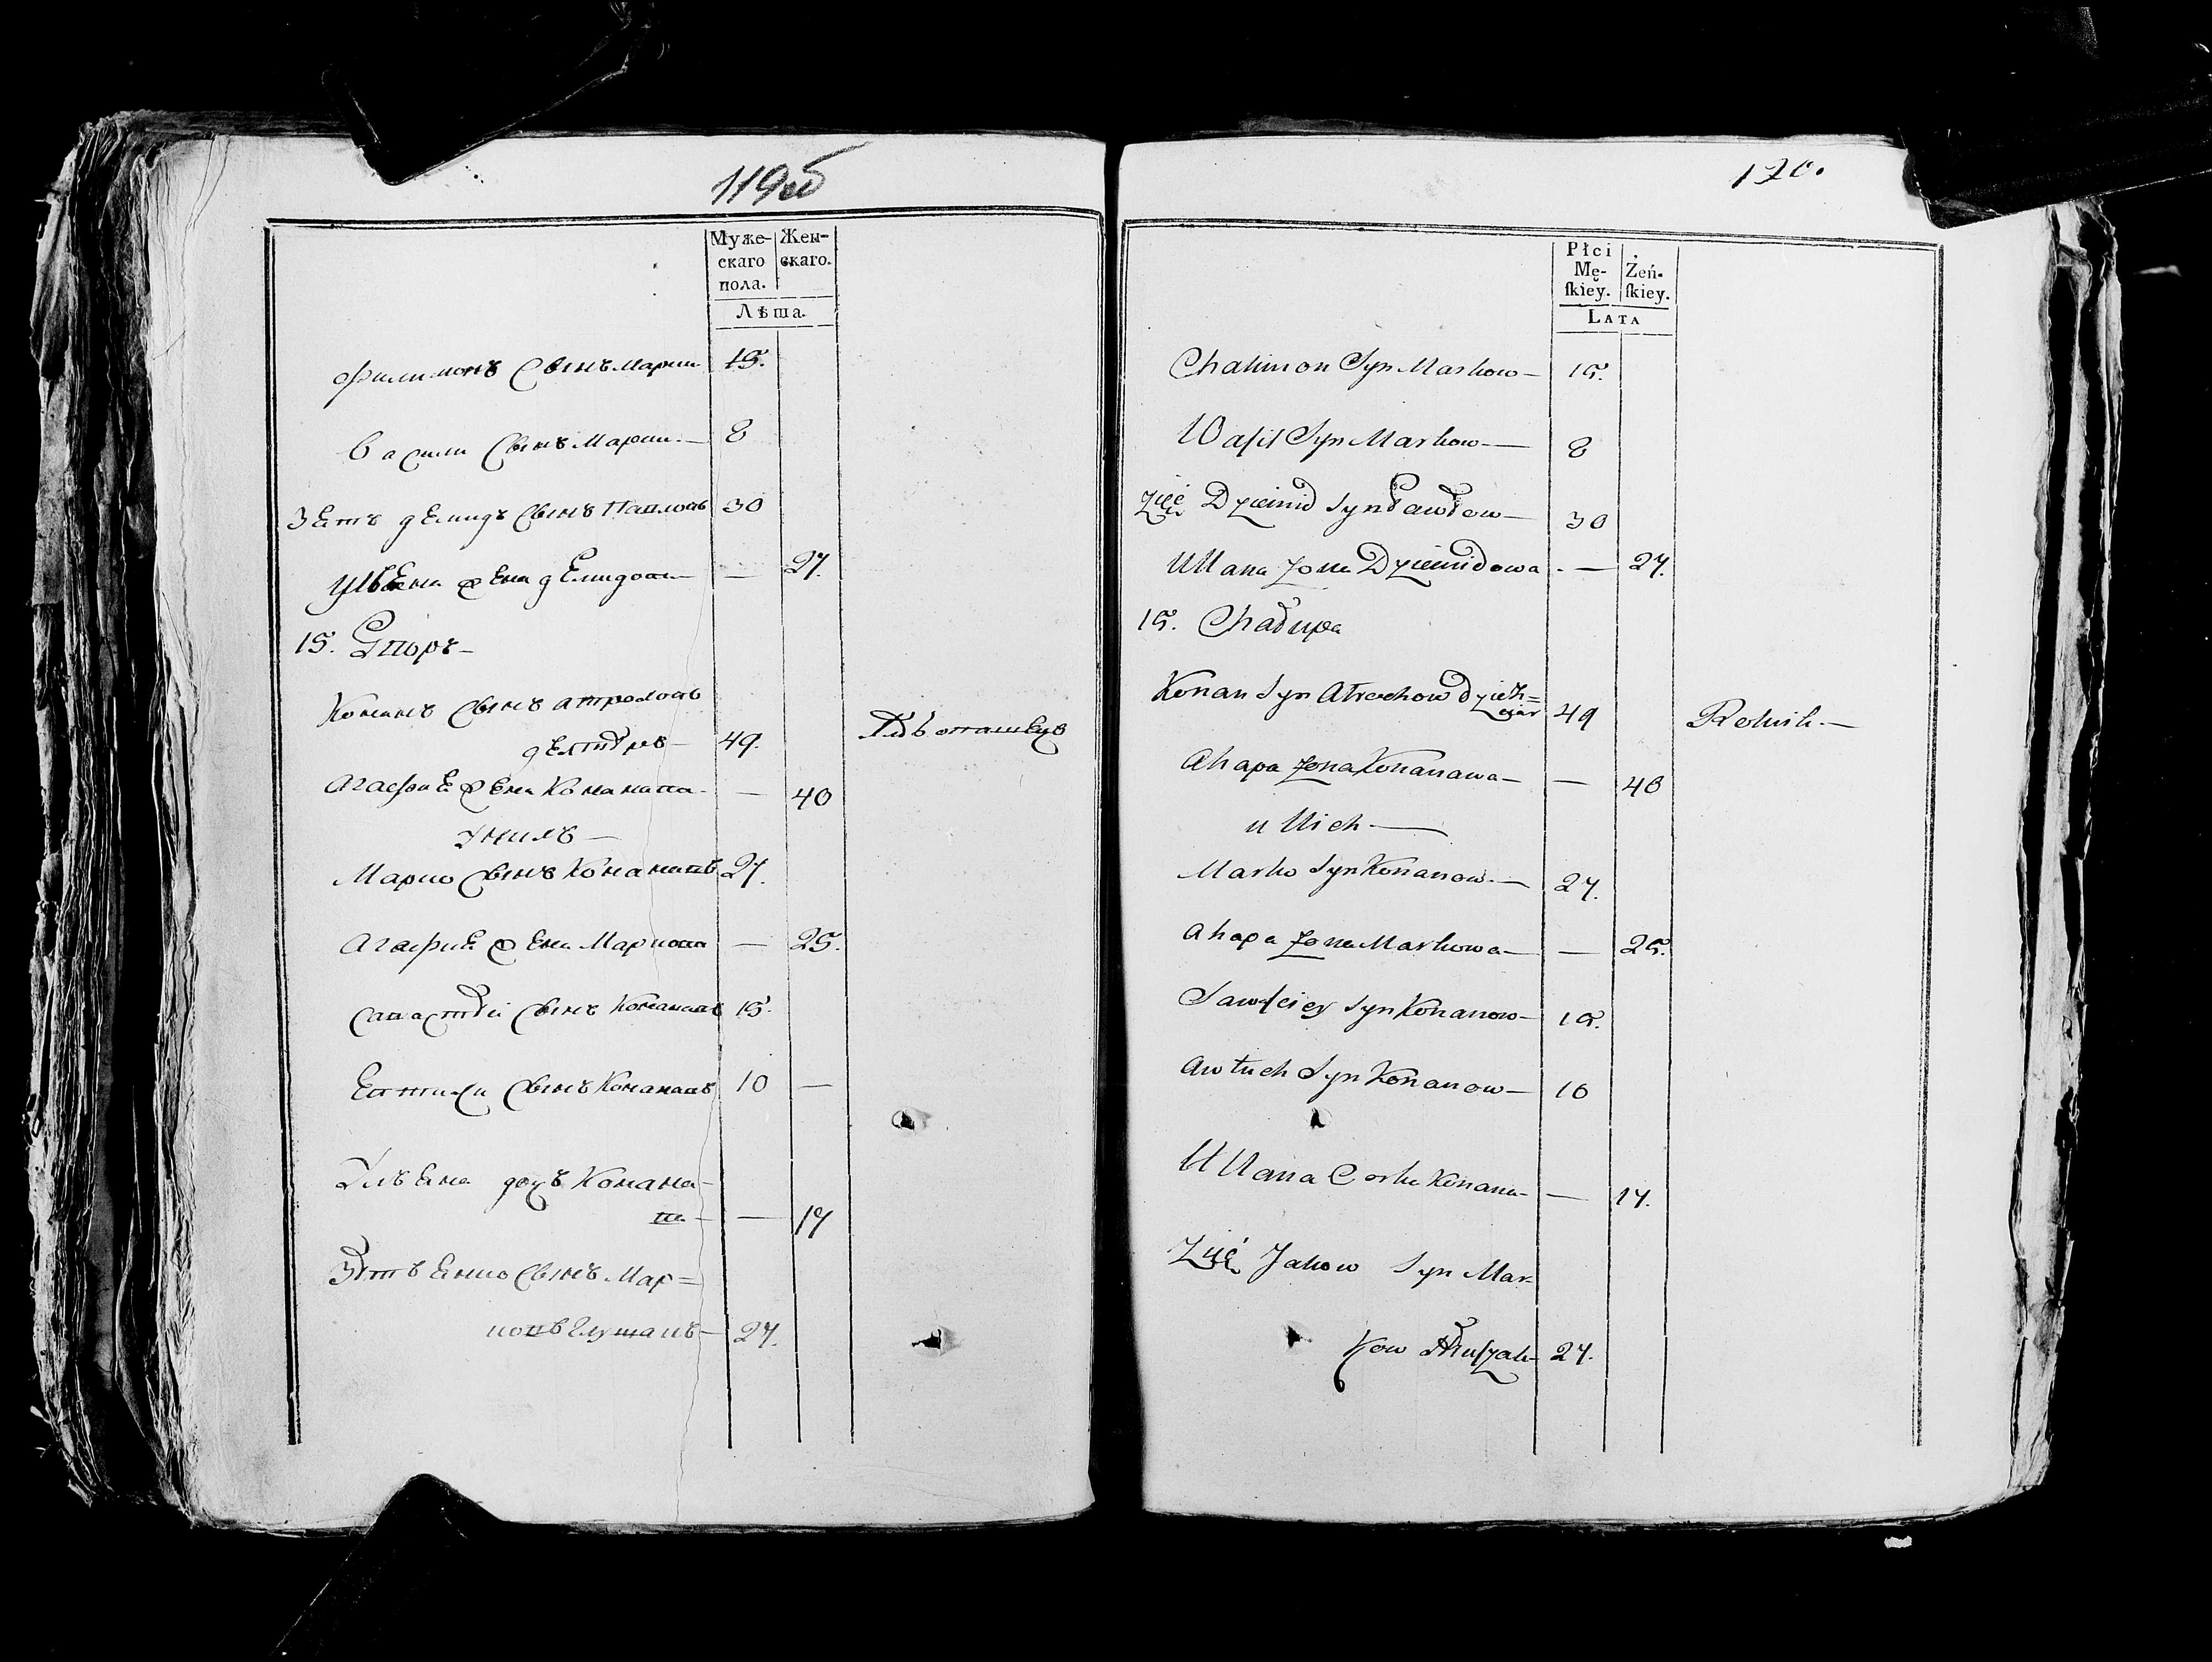 119об
Муже-
скаго
пола.
Жен-
скаго.
Лѣта.
Филимонъ Сынъ Марки 15.
Васили Сынъ Марки — 8
Зеть Демидъ Сынъ Павловъ 30
Ульена жена Демидова — 27.
15. Дворъ —
Конанъ Сынъ Атроховъ
49.
Агафие жена Конанова — 40
У нихъ —
Марко Сынъ Конановъ 27.
Агафие жена Маркова — 25.
Савастей Сынъ Конановъ 15.
Евтихи Сынъ Конановъ 10 —
Ульена дочь Конана-
ва — — 17
Зеть Енко Сынъ Мар=
ковъ 27.
120.
Płci
Mę-
ſkiey.
Żeń-
ſkiey.
Lata
Chalimon Syn Markow — 15.
Waſil Syn Markow — 8
Zięć Dziemid Syn Pawłow — 30
Ullana Żona Dziemidowa — 27.
15. Chałupa
Konan Syn Atrochow 49
Rolnik —
Ahapa Żona Konanowa — 40
u Nich —
Marko Syn Konanow — 27.
Ahapa Żona Markowa — 25.
Sawſciey Syn Konanow — 15.
Awtuch Syn Konanow — 10
Ullana Corka Konana — 17.
Zięć Jakow Syn Mar-
kow 27.